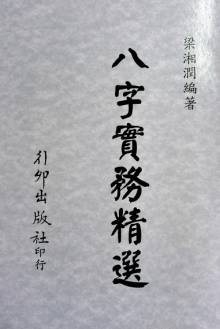 梁湘潤編著
八字實務精選
行卯出版社印行